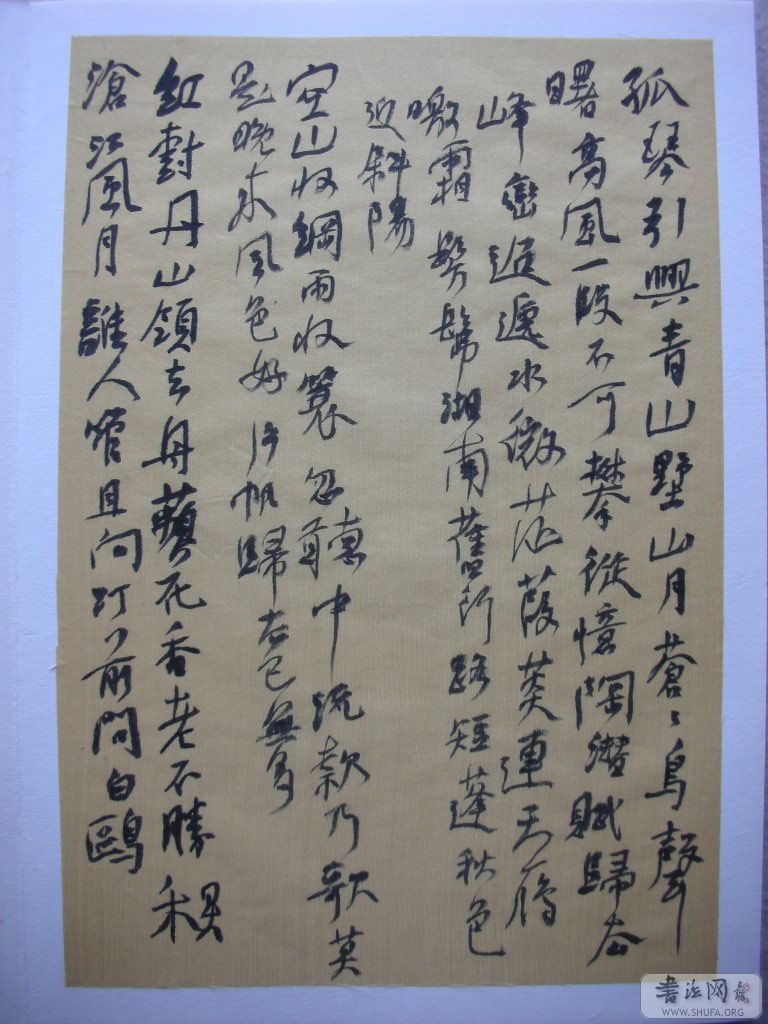 孤琴引興青山墅山月蒼々鳥聲
曙高風一段不可攀從憶陶潛賦歸去
峰巒遞遞水微茫葭菼連天雁
嗷霜髣髴湖南舊所路短蓬秋色
近斜陽
空山收綱雨收簑忽聽中流款乃歌莫
是晚來風色好片帆歸去已無多
紅對丹山領去舟蘋花香老不勝秋
滄江風月誰人管且向汀前問白鷗
書法网
WWW.SHUFA.ORG